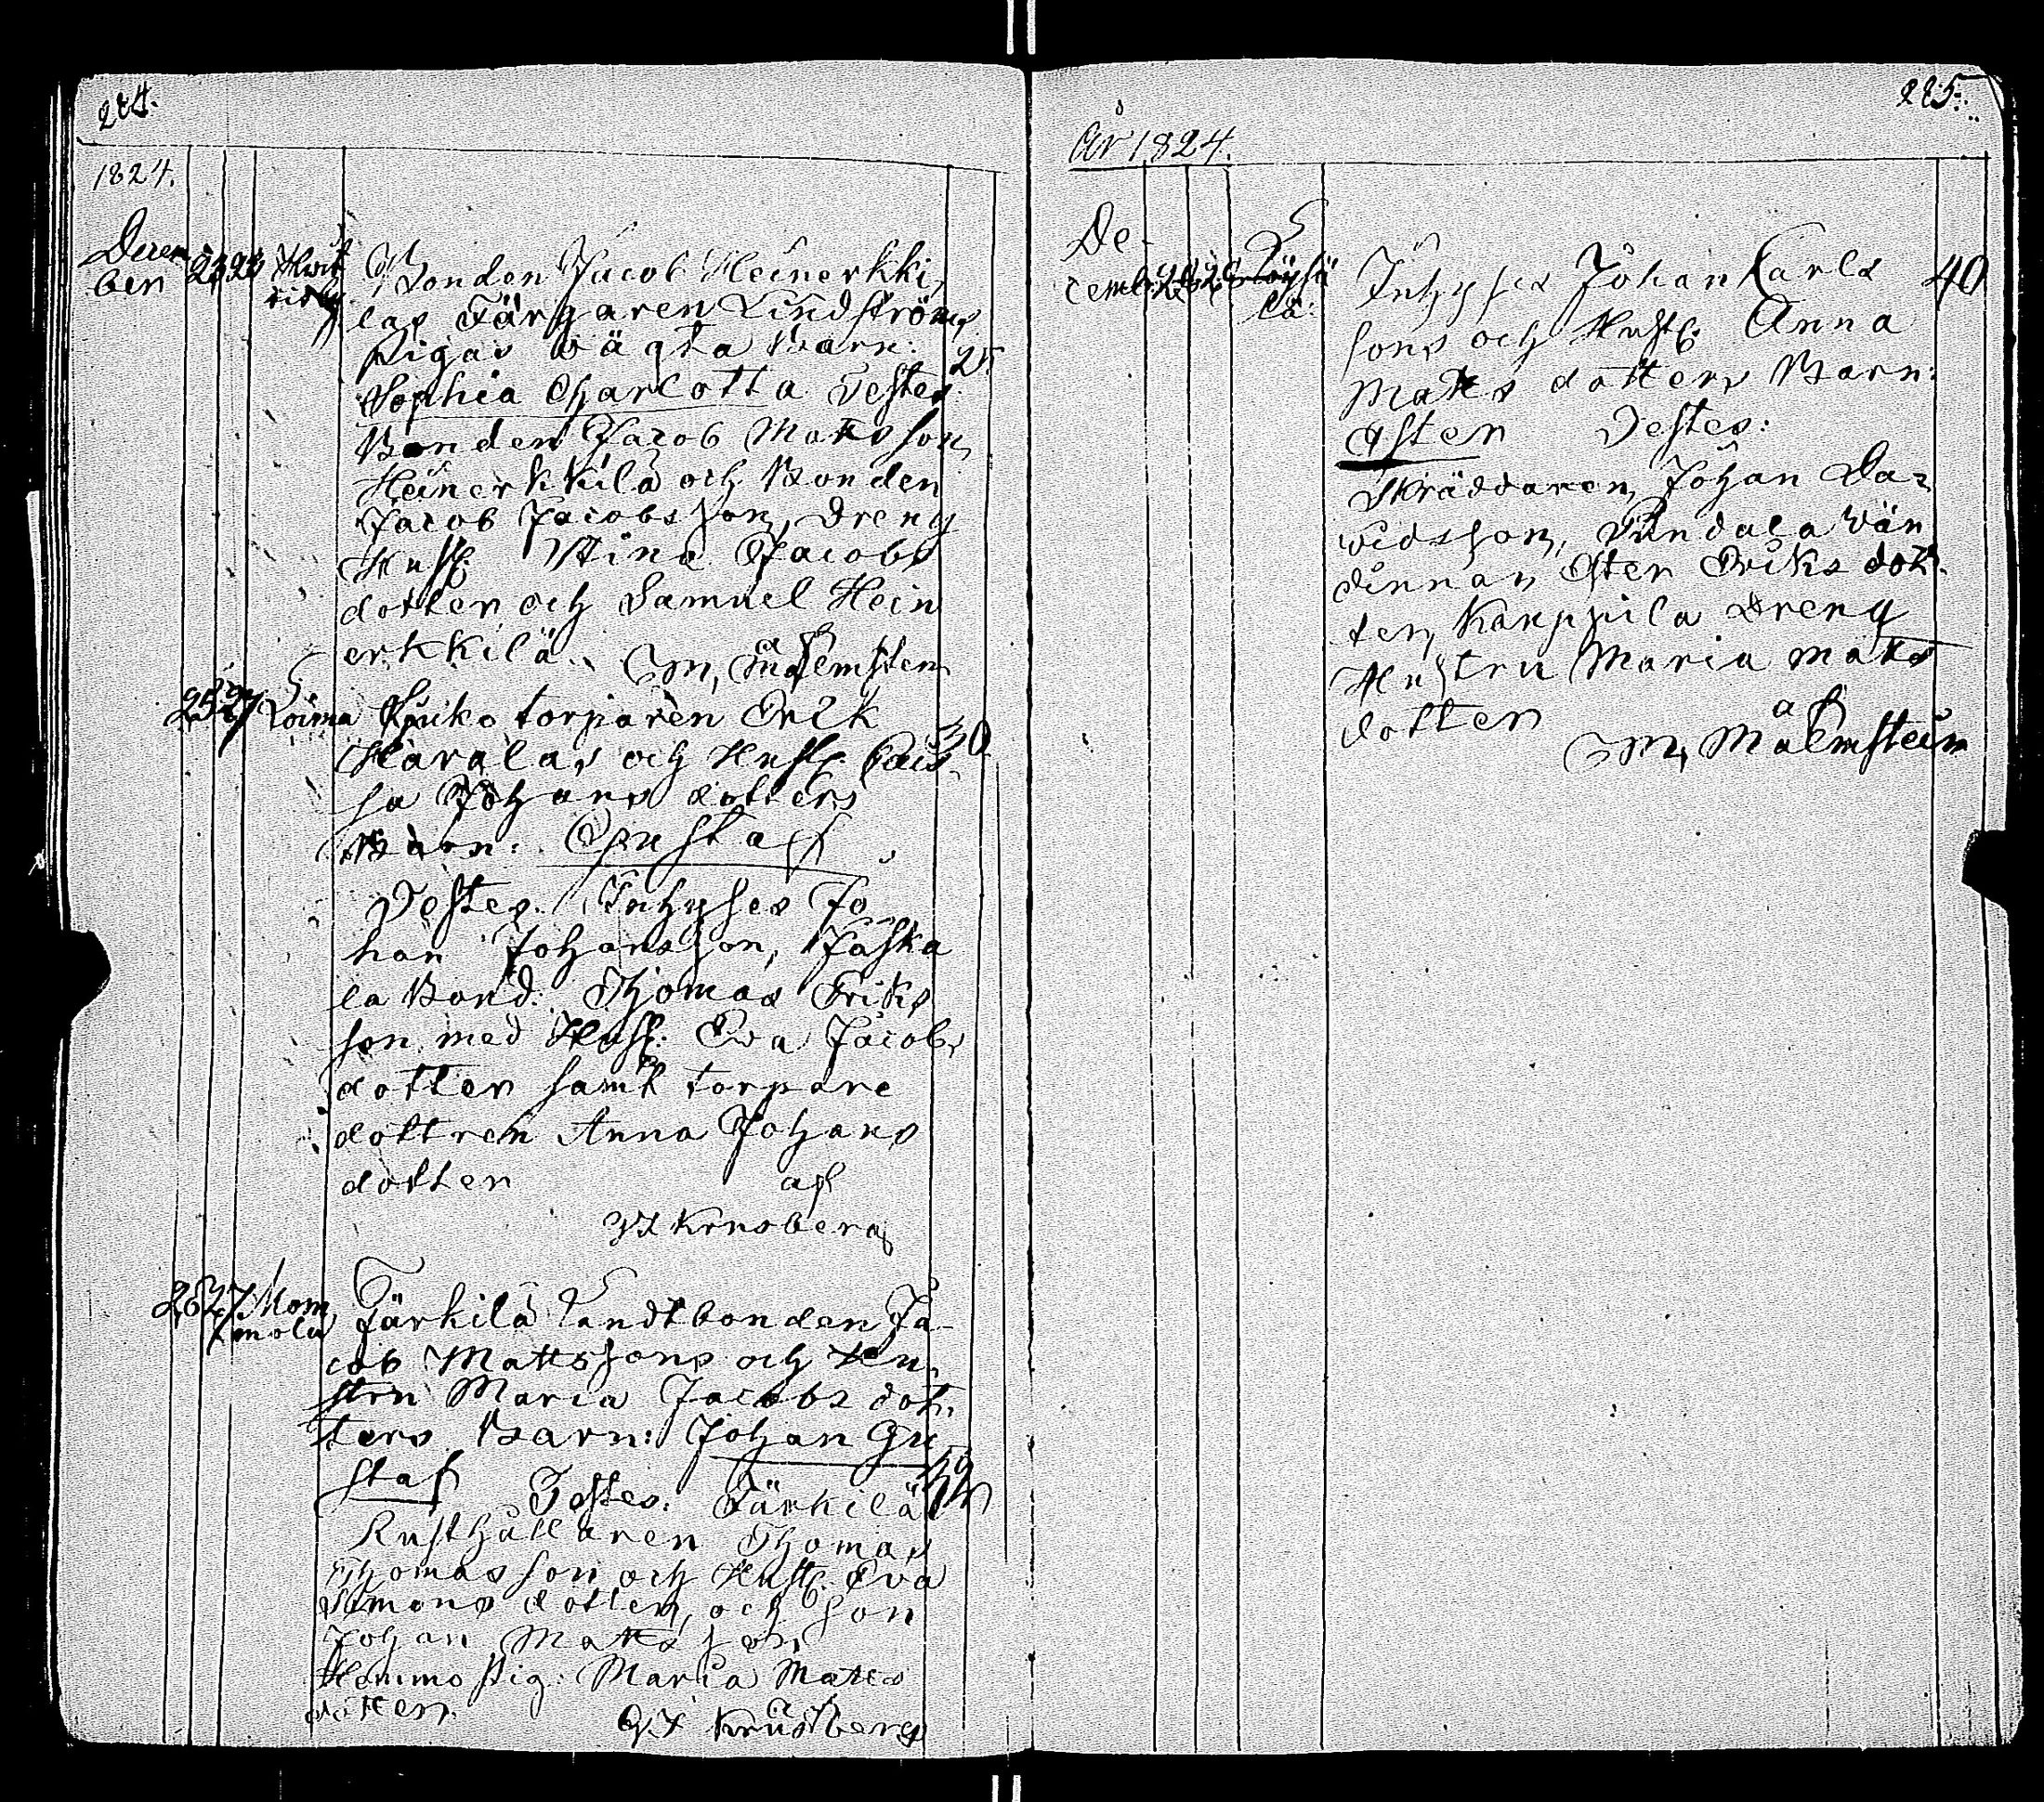 284.
1824.
Decem
ber 23 23
Bonden Jacob Heinerkki,
las Färgaren Lindströms
Pigas oägta Barn: 25.
Sophia Charlotta Testes
Bonden Jacob Matsson
Heinerkkilä och Bonden
Jacob Jacobsson, Dreng
Hust: Stina Jacobs
dotter och Samuel Hein
erkkilä. af
M, Malmsten
25 27 Loima torparen Erik 30
Haralas och Hust: Cais
sa Johans dotters
Barn: Gustaf
Testes. Inhyses Jo
han Johansson, Jaska
la Bond: Thomas Eriks
son med Hust: Eva Jacobs
dotter samt torpare
dottren Anna Johans
dotter af
Krusberg
26 27 Mom
mola Färkilä Landtbonden Ja-
cob Mattssons och Hu
stru Maria Jacobs dot,
ters Barn: Johan Gu
staf Testes. Färkilä
Rusthållaren Thomas
Thomasson och Hust: Eva
Simons dotter, och Son
Johan Matsson
Hemmo Pig: Maria Mats
dotter.
Krusberg
285.
År 1824.
De-
cemb: 28 28 Löysä
lä: Inhyses Johan Carls 40
sons och Hust: Anna
Mats dotters Barn:
Esten Testes:
Skräddaren, Johan Da-
vidsson, Pundala Vär
dinnan, Ester Eriks dot
ter, Kauppila Dreng
Hustru Maria Mats
dotter
af
M, Malmstein